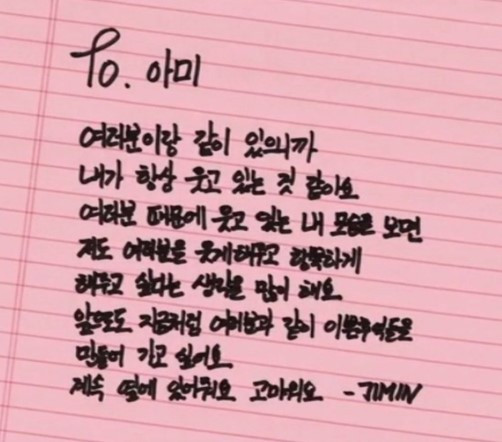 To. 아미
여러분이랑 같이 있으니까
내가 항상 웃고 있는 것 같아요
여러분 때문에 웃고 있는 내 모습을 보면
저도 여러분을 웃게해주고 행복하게
해주고 싶다는 생각을 많이 해요
앞으로도 지금처럼 여러분과 같이 이쁜추억들을
만들어 가고 싶어요
계속 옆에 있어줘요 고마워요 -JIMIN